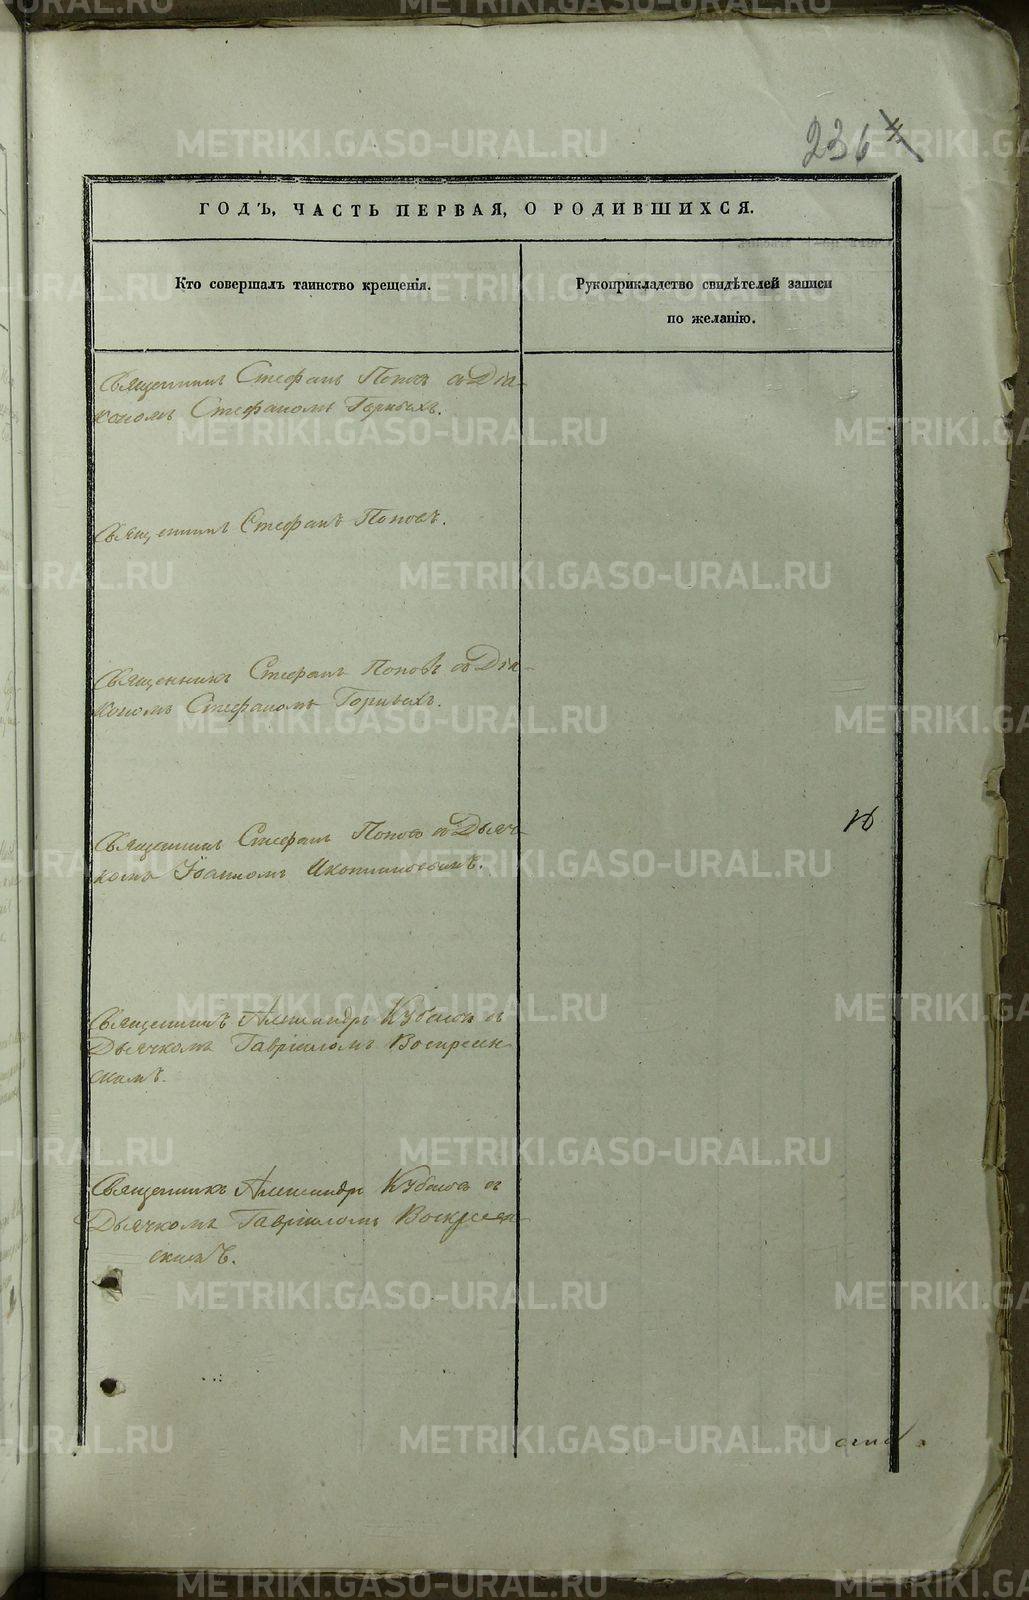 236
ГОДЪ, ЧАСТЬ ПЕРВАЯ, О РОДИВШИХСЯ.
Кто совершалъ таинство крещенія.
Рукоприкладство свидѣтелей записи
по желанію.
Священникъ Стефанъ Поповъ съ Діа-
кономъ Стефаномъ Горныхъ.
Священникъ Стефанъ Поповъ.
Священникъ Стефанъ Поповъ съ Діа-
кономъ Стефаномъ Горныхъ.
Священникъ Стефанъ Поповъ съ Дьяч-
комъ Іоанномъ
Священникъ Александръ съ
Дьячкомъ Гавріиломъ Воскресен-
скимъ.
Священникъ Александръ съ
Дьячкомъ Гавріиломъ Воскресен-
скимъ.
METRIKI.GASO-URAL.RU